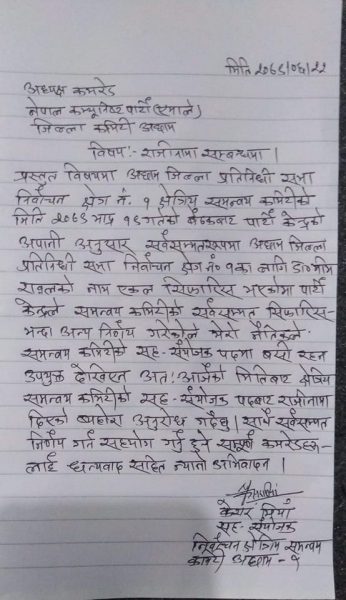 मिति २०७९/०६/२२
अध्यक्ष कमरेड
नेपाल कम्युनिष्ट पार्टी (एमाले)
जिल्ला कमिटी अछाम
विषय:- राजीनामा सम्बन्धमा।
प्रस्तुत विषयमा अछाम जिल्ला प्रतिनिधी सभा
निर्वाचन क्षेत्र नं. १ क्षेत्रिय समन्वय कमिटीको
मिति २०७९ भाद्र १६ गतेको बैठकबाट पार्टी केन्द्रको
अनुसार सर्वसम्मतरूपमा अछाम जिल्ला
प्रतिनिधी सभा निर्वाचन क्षेत्र नं० १ का लागि डा० भीम
रावलको नाम एकल सिफारिस भएकोमा पार्टी
केन्द्रले समन्वय कमिटीको सर्वसम्मत सिफारिस-
भन्दा अन्य निर्णय गरेकोले मेरो नैतिकले
समन्वय कमिटीको सह-संयोजक पदमा बसी रहन
उपयुक्त देखिएन अत: आजैको मितिबाट क्षेत्रिय
समन्वय कमिटीको सह-संयोजक पदबाट राजीनामा
दिएको ब्यहोरा अनुरोध गर्दछु। साथै सर्वसम्मत
निर्णय गर्न सहयोग गर्नु हुने सम्पूर्ण कमरेडहरु-
लाई धन्यवाद सहित न्यानो अभिवादन।
सह-संयोजक
निर्वाचन क्षेत्रिय समन्वय
कमिटी अछाम-१